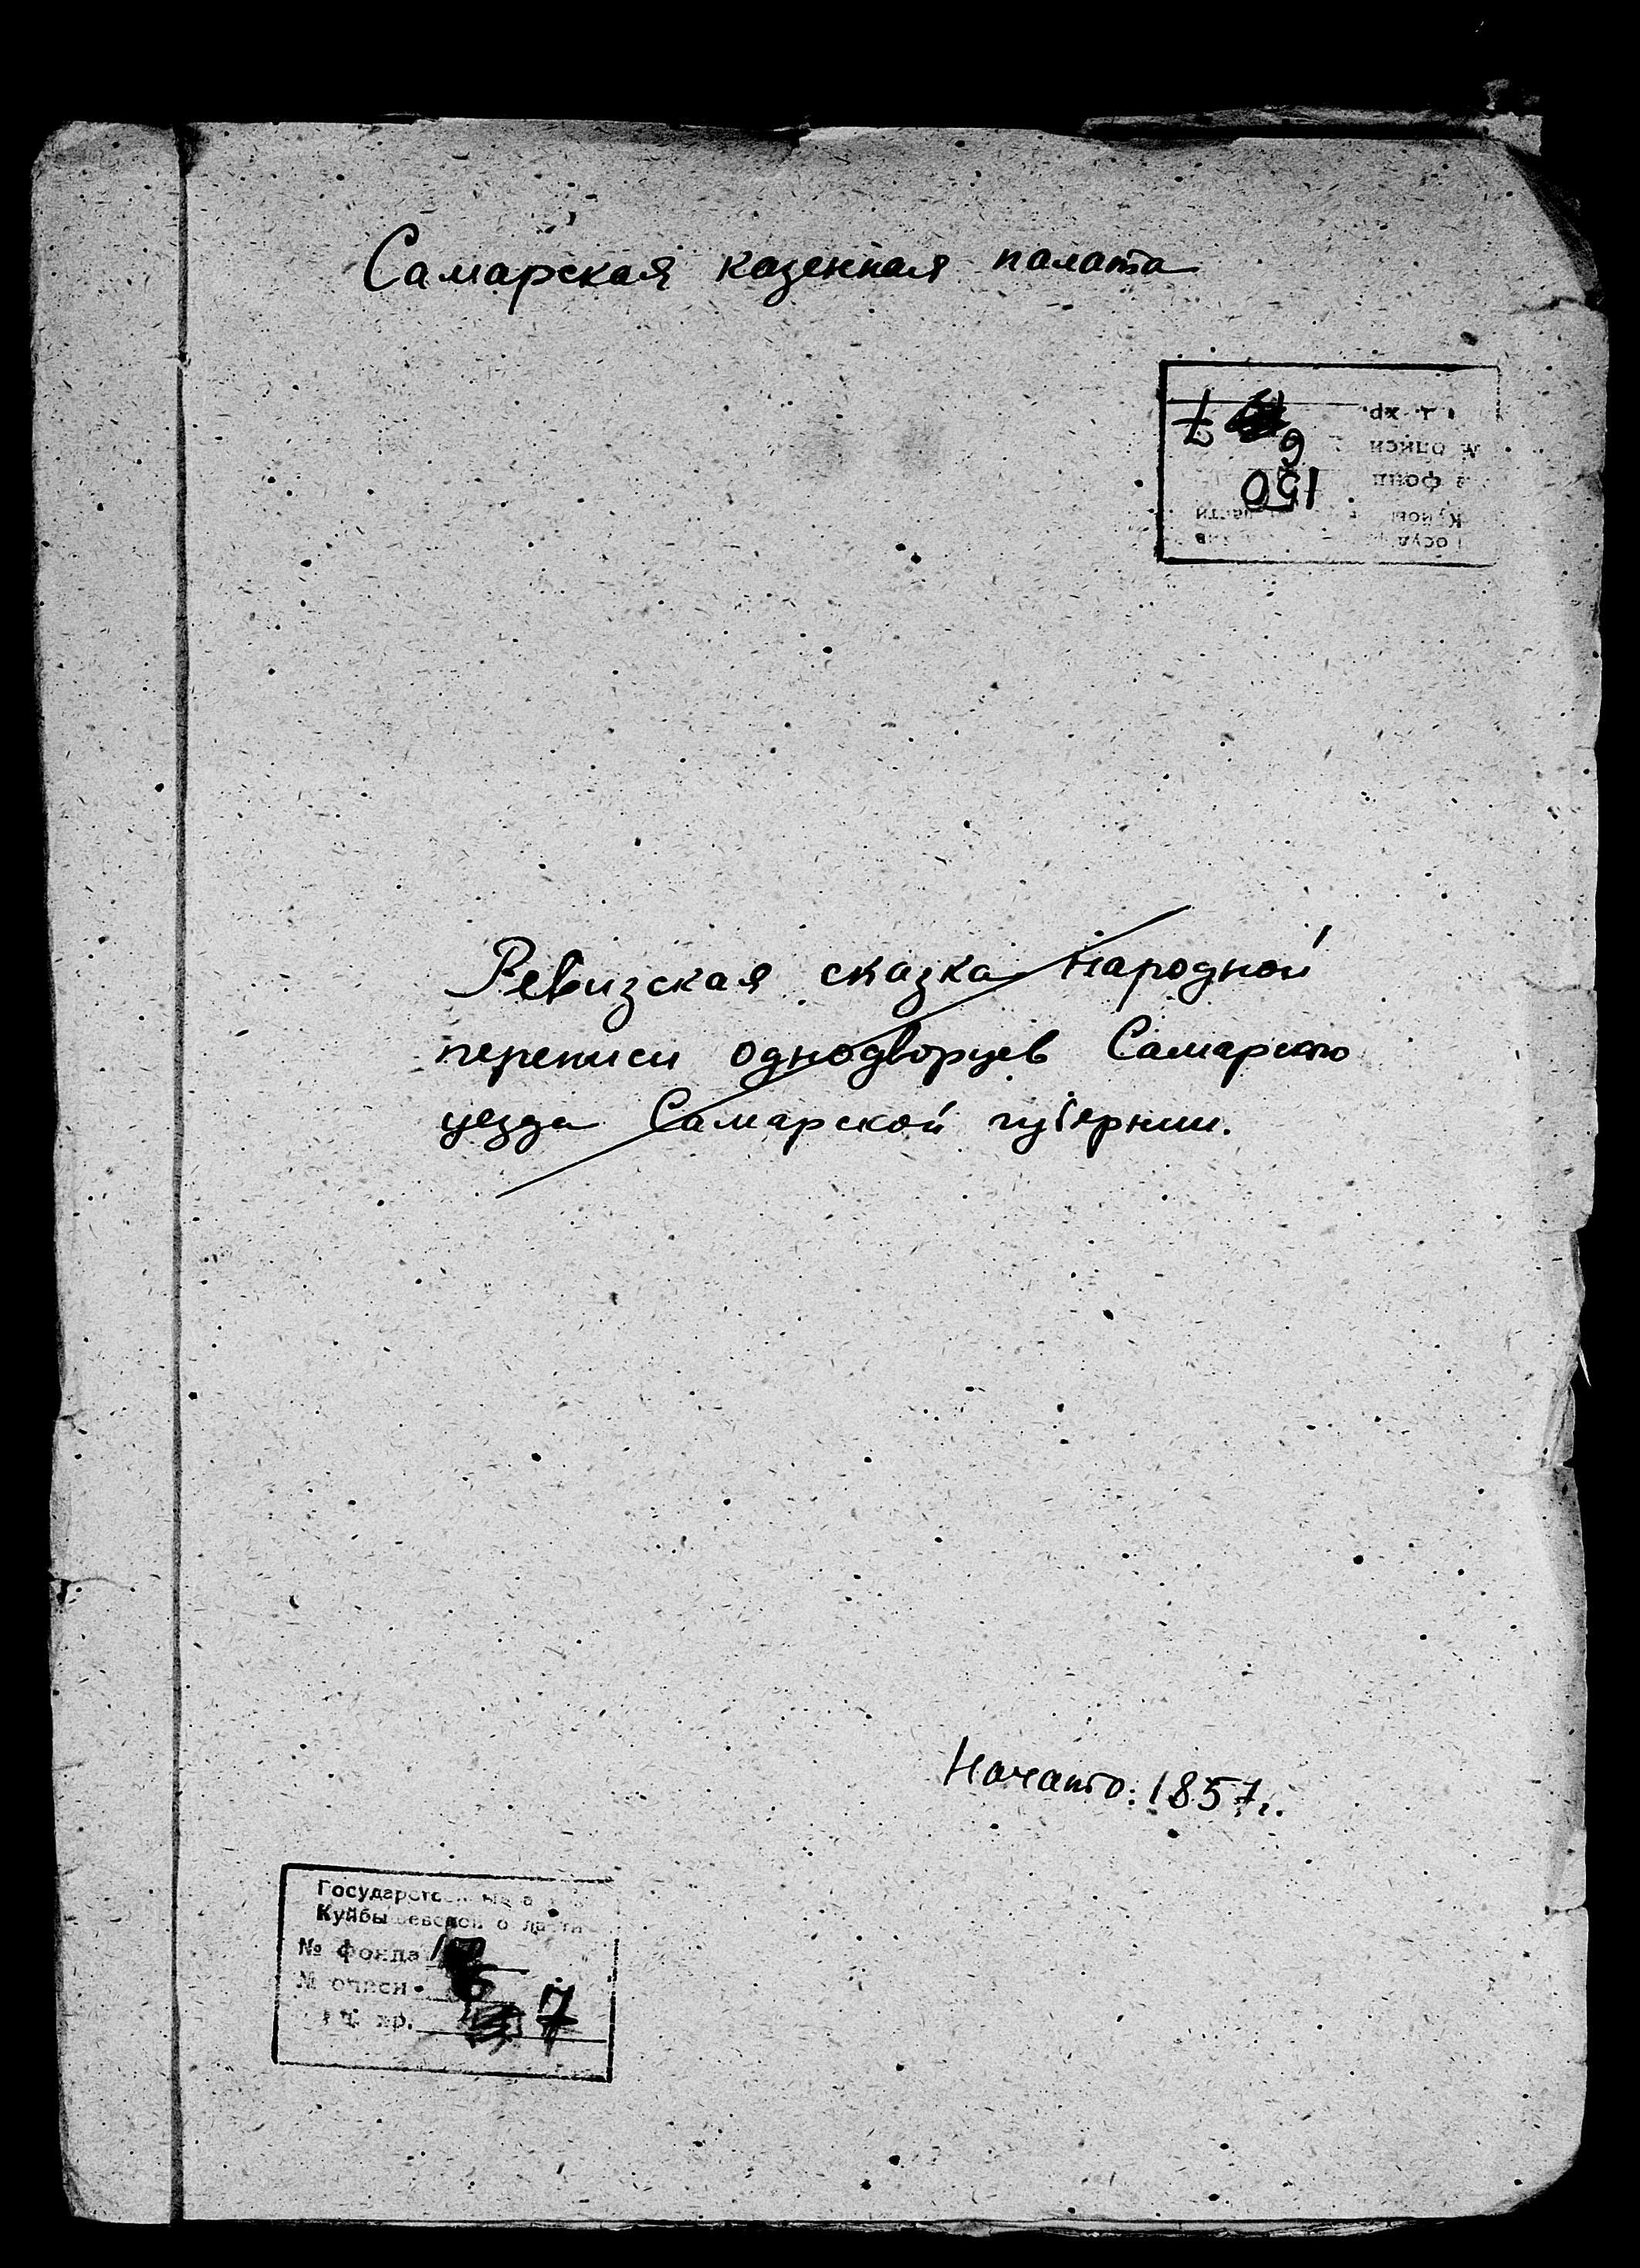 Самарская казенная палата
хр.
№ описи 6
№ фонд 150
7
Ревизская сказка народной
переписи однодворцев Самарского
уезда Самарской губернии.
Начато: 1857 г.
Государственный а
Куйбышевской области
№ фонда
№ описи 6
хр. 7